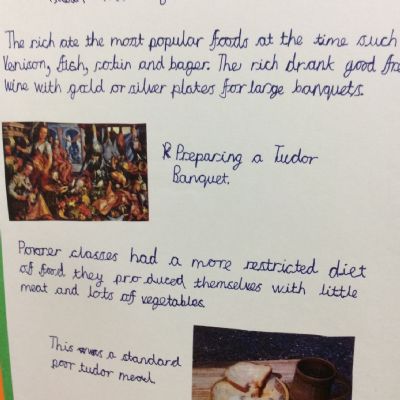 The rich ate the most popular foods at the time such
Venison, fish, robin and bager. The rich drank good
wine with gold or silver plates for large banquets.
Preparing a Tudor
Banquet.
Poorer classes had a more restricted diet
of food they produced themselves with little
meat and lots of vegetables
This was a standard
poor tudor meal.